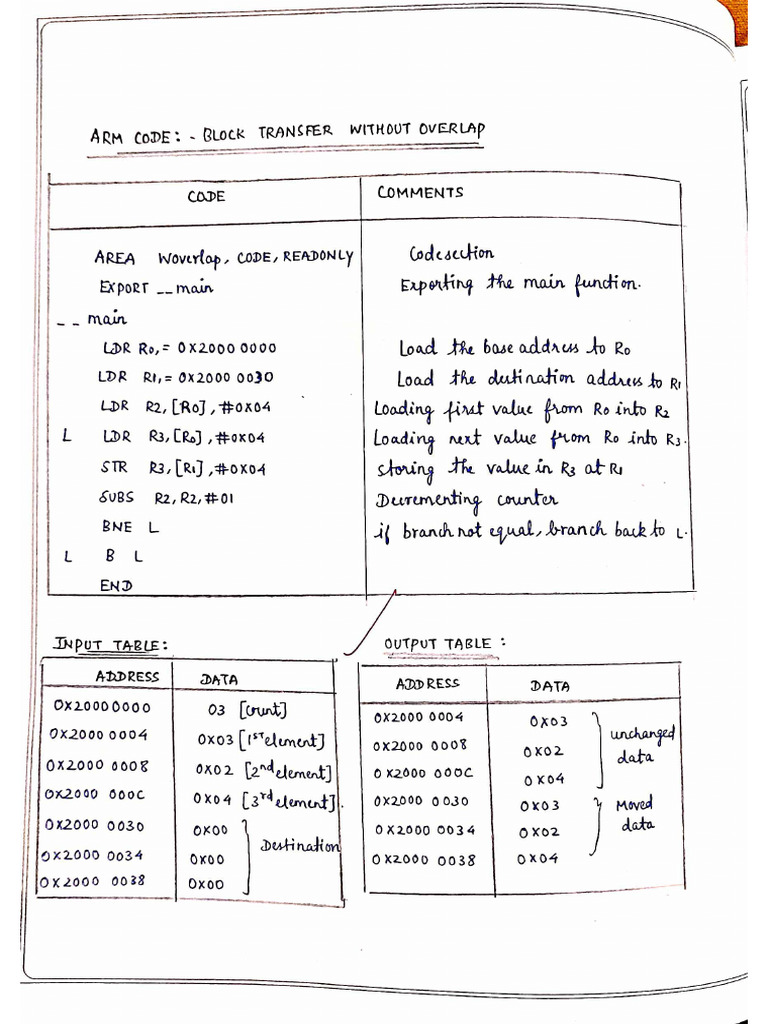 ARM CODE: - BLOCK TRANSFER WITHOUT OVERLAP
CODE COMMENTS
AREA Woverlap, CODE, READONLY Code section
EXPORT __main Exporting the main function.
__ main
LDR R0, = 0X2000 0000 Load the base address to R0
LDR R1, = 0X2000 0030 Load the destination address to R1
LDR R2, [R0], #0X04 Loading first value from R0 into R2
L LDR R3, [R0], #0X04 Loading next value from R0 into R3.
STR R3, [R1], #0X04 storing the value in R3 at R1
SUBS R2, R2, #01 Decrementing counter
BNE L if branch not equal, branch back to L.
L B L
END
INPUT TABLE: OUTPUT TABLE :
ADDRESS DATA
0X20000000 03 [count]
0X2000 0004 0X03 [1st element]
0X2000 0008 0X02 [2nd element]
0X2000 000C 0X04 [3rd element].
0X2000 0030 0X00
0X2000 0034 0X00
0X2000 0038 0X00
Destination
ADDRESS DATA
0X2000 0004 0X03
0X2000 0008 0X02
0X2000 000C 0X04
unchanged
data
0X2000 0030 0X03
0X2000 0034 0X02
0X2000 0038 0X04
Moved
data